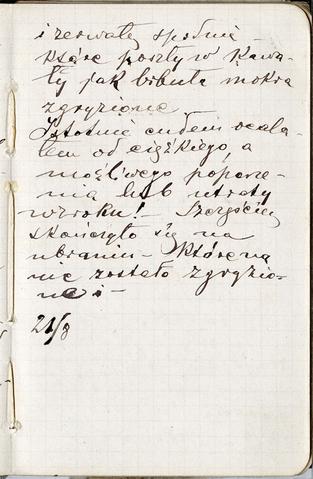 i zerwałę spodnie
które poszły w kawa-
ły jak bibuła mokra
zgryzione
Istotnie cudem ocala-
łem od ciężkiego, a
możliwego poparze-
nia lub utraty
wzroku! – Szczęściem
skończyło się na
ubraniu – które na
nic zostało zgryzio-
ne i –
21/8